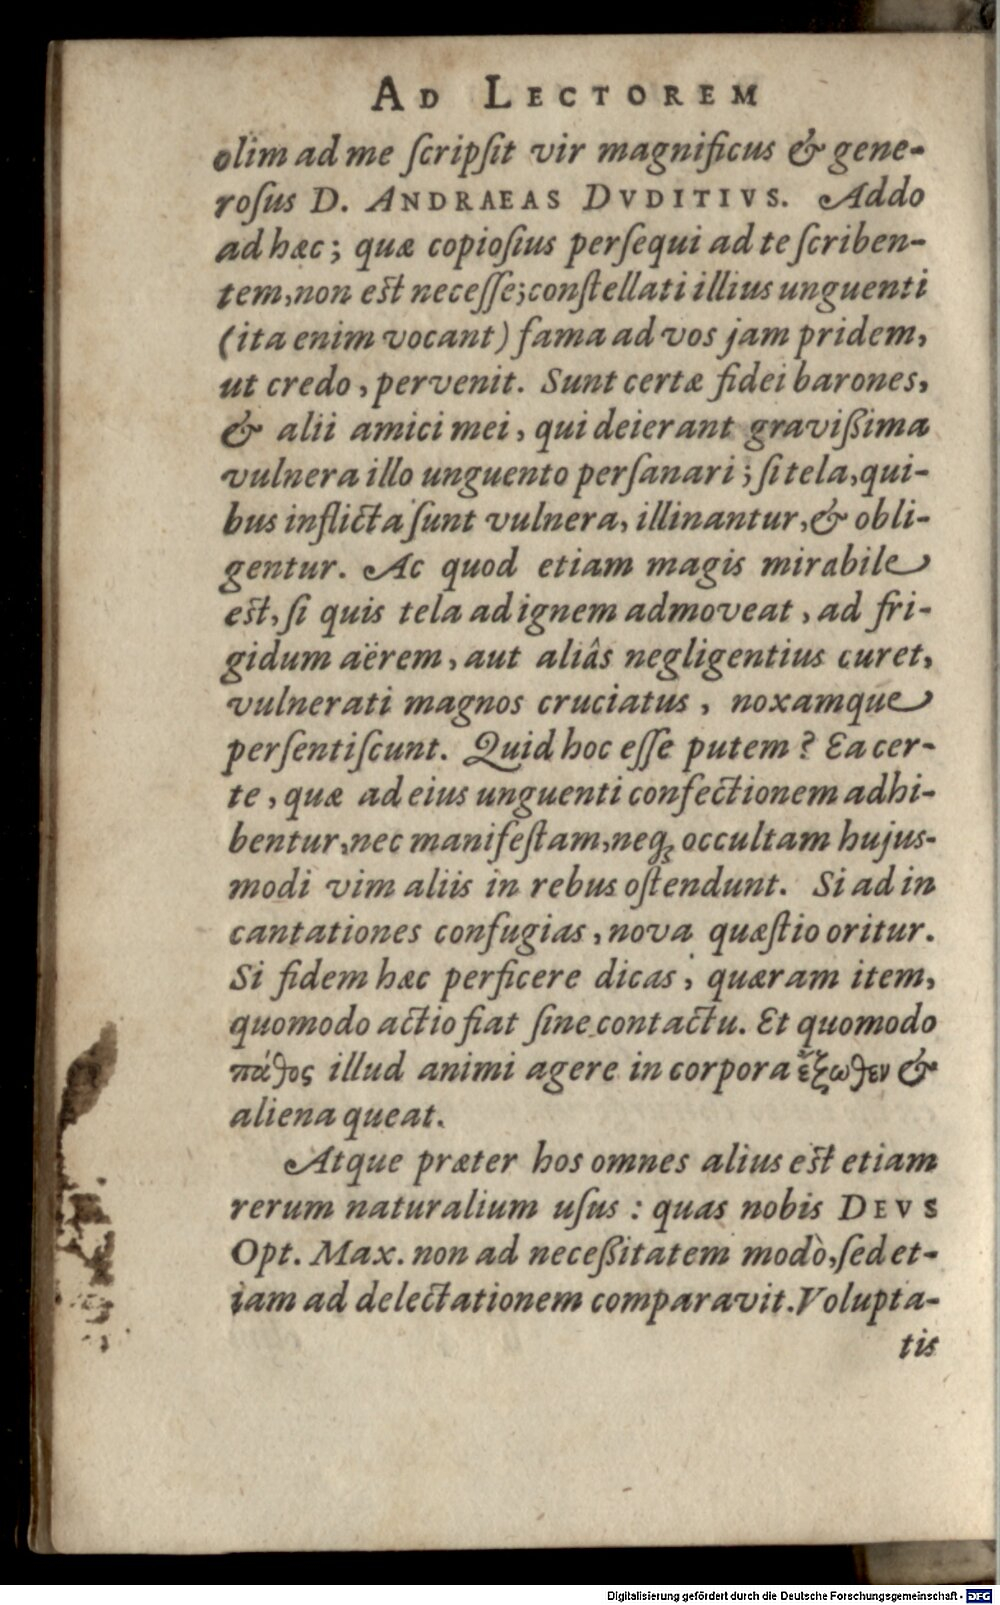 AD LECTOREM
olim ad me ſcripſit vir magnificus & gene-
roſus D. ANDRAEAS DVDITIVS. Addo
ad hæc; quæ copioſius perſequi ad te ſcriben-
tem, non eſt neceſſe; conſtellati illius unguenti
(ita enim vocant) fama ad vos jam pridem,
ut credo, pervenit. Sunt certæ fidei barones,
& alii amici mei, qui deierant gravißima
vulnera illo unguento perſanari; ſi tela, qui-
bus inflicta ſunt vulnera, illinantur, & obli-
gentur. Ac quod etiam magis mirabile
eſt, ſi quis tela ad ignem admoveat, ad fri-
gidum aërem, aut aliâs negligentius curet,
vulnerati magnos cruciatus, noxamque
perſentiſcunt. Quid hoc eſſe putem? Ea cer-
te, quæ ad eius unguenti confectionem adhi-
bentur, nec manifeſtam, neq; occultam hujus-
modi vim aliis in rebus oſtendunt. Si ad in
cantationes confugias, nova quæſtio oritur.
Si fidem hæc perficere dicas, quæram item,
quomodo actio fiat ſine contactu. Et quomodo
πάθος illud animi agere in corpora ἔξωθεν &
aliena queat.
Atque præter hos omnes alius eſt etiam
rerum naturalium uſus: quas nobis DEVS
Opt. Max. non ad neceßitatem modò, ſed et-
iam ad delectationem comparavit. Volupta-
tis
Digitalisierung gefördert durch die Deutsche Forschungsgemeinschaft - DFG